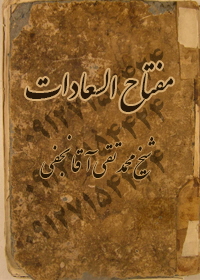 مفتاح السعادات
شیخ محمد تقی آقا نجفی